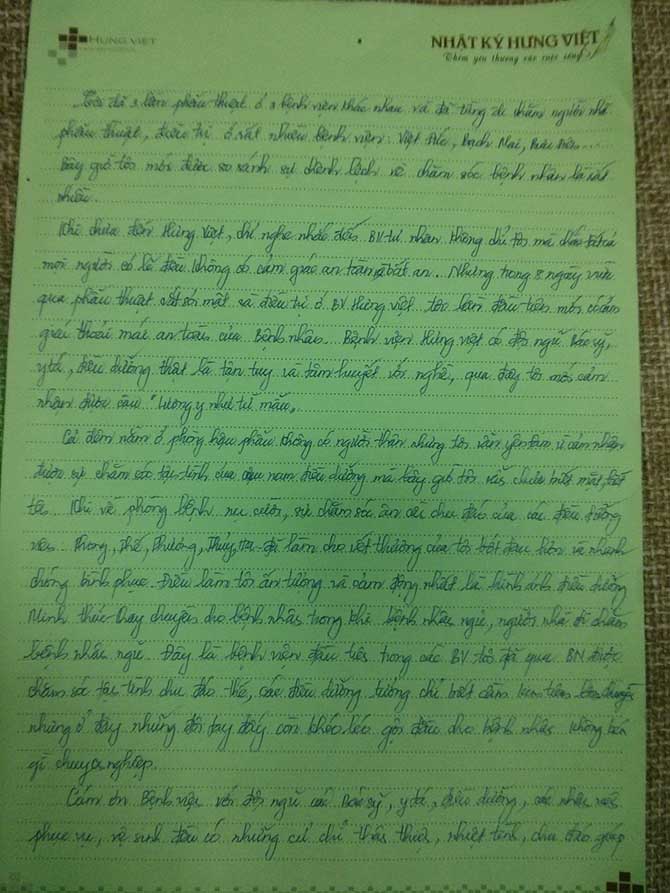 HƯNG VIỆT
NHẬT KÝ HƯNG VIỆT
Thêm yêu thương vào cuộc sống
Tôi đã 3 lần phẫu thuật ở 3 bệnh viện khác nhau và đã từng đi chăm người nhà
phẫu thuật, điều trị ở rất nhiều bệnh viện: Việt Đức, Bạch Mai,
Bây giờ tôi mới được so sánh sự chênh lệch về chăm sóc bệnh nhân là rất
nhiều.
Khi chưa đến Hưng Việt, chỉ nghe nhắc đến BV tư nhân không chỉ tôi mà
mọi người có lẽ đều không có cảm giác an toàn, bất an. Nhưng trong 8 ngày vừa
qua phẫu thuật cắt sỏi mật và điều trị ở BV Hưng Việt tôi lần đầu tiên mới có cảm
giác thoải mái an toàn của bệnh nhân. Bệnh viện Hưng Việt có đội ngũ Bác sỹ,
y tá, điều dưỡng thật là tận tụy và tâm huyết với nghề, qua đây tôi mới cảm
nhận được câu "Lương y như từ mẫu"
Cả đêm nằm ở phòng hậu phẫu không có người thân nhưng tôi vẫn yên tâm vì cảm nhận
được sự chăm sóc tận tình của cậu nam điều dưỡng mà bây giờ tôi vẫn chưa biết mặt, biết
tên. Khi về phòng bệnh nụ cười, sự chăm sóc ân cần chu đáo của các điều dưỡng
viên Phong, Thế, Phương, Thủy, đã làm cho vết thương của tôi bớt đau hơn và nhanh
chóng bình phục. Điều làm tôi ấn tượng và cảm động nhất là hình ảnh điều dưỡng
Minh thức thay chuyền cho bệnh nhân trong khi bệnh nhân ngủ, người nhà đi chăm
bệnh nhân ngủ. Đây là bệnh viện đầu tiên trong các BV tôi đã qua BN được
chăm sóc tận tình chu đáo thế, các điều dưỡng tưởng chỉ biết cầm kim tiêm
nhưng ở đây những đôi tay đấy còn khéo léo gội đầu cho bệnh nhân không kém
gì chuyên nghiệp.
Cảm ơn Bệnh viện với đội ngũ các Bác sỹ, y tá, điều dưỡng, các nhân viên
phục vụ, vệ sinh đều có những cử chỉ thân thiện, nhiệt tình, chu đáo giúp